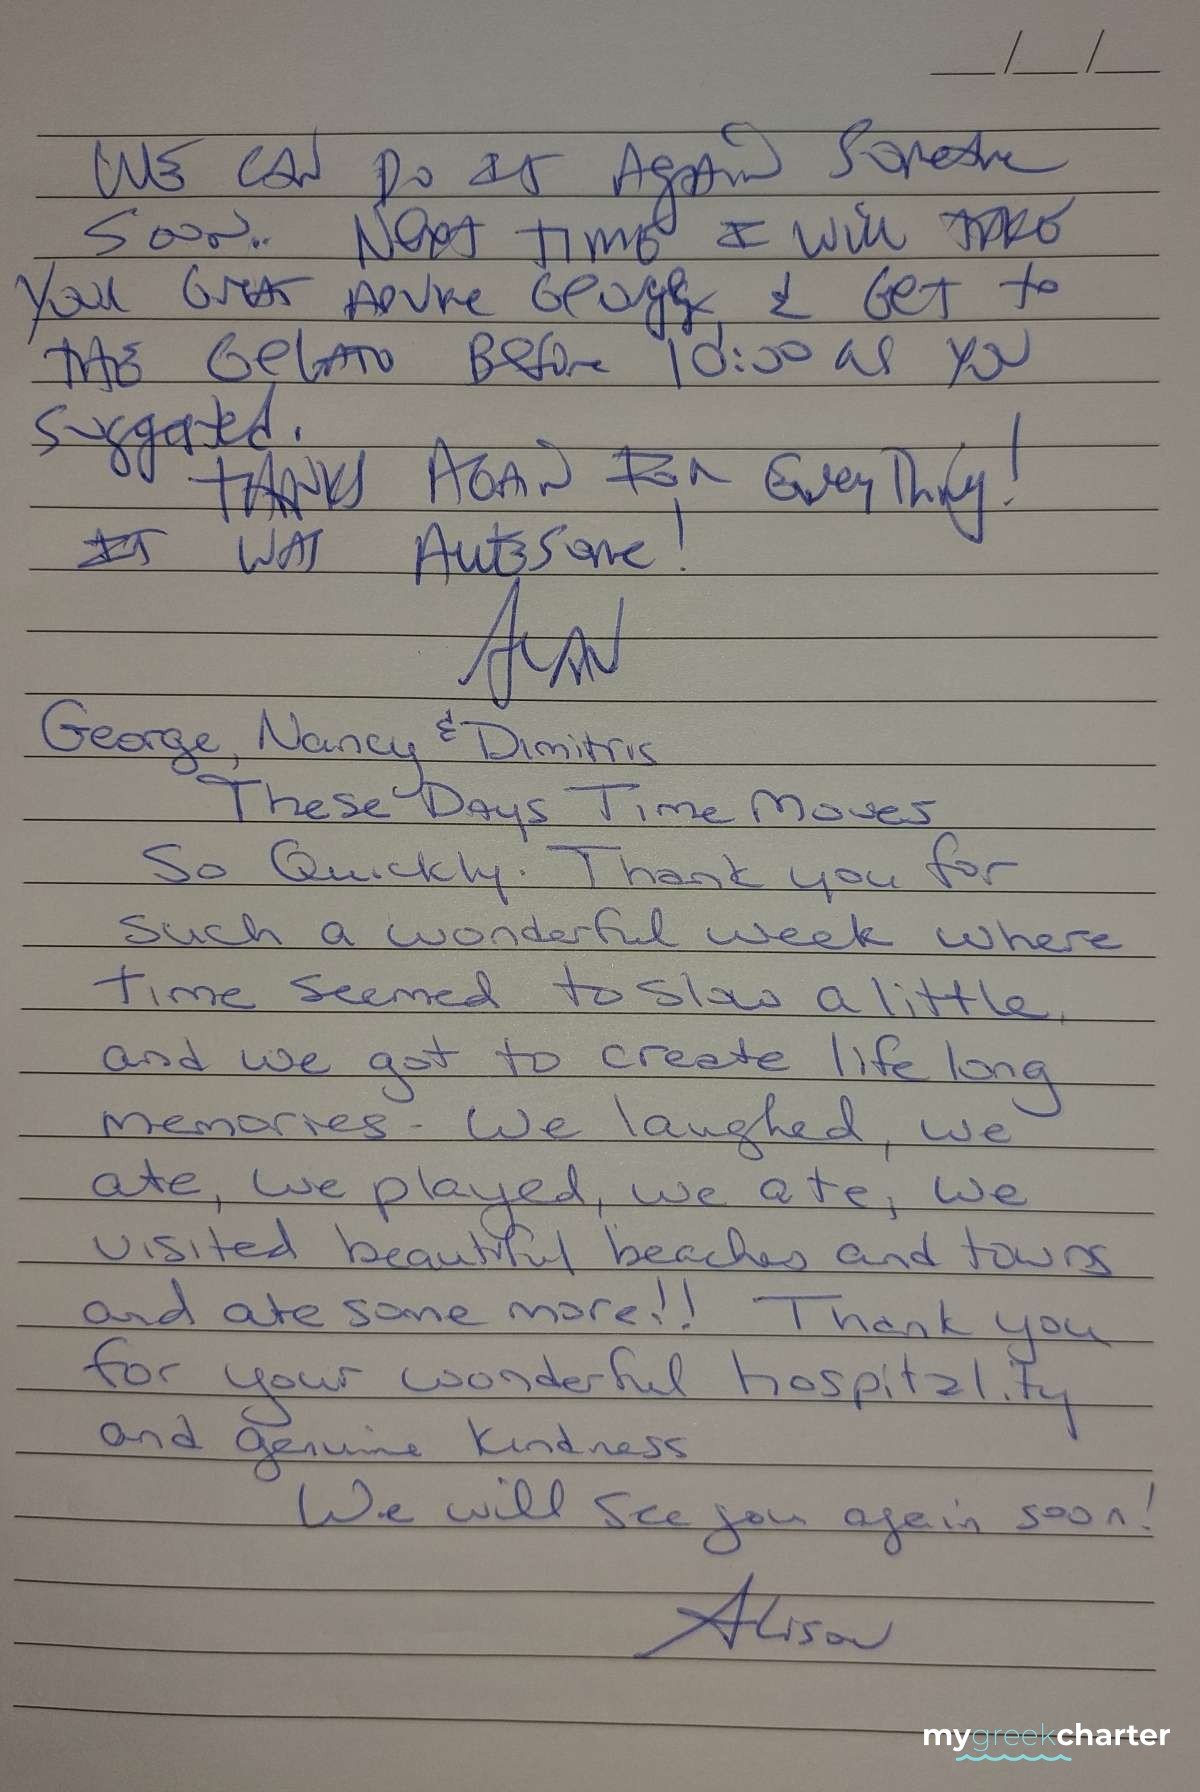 __/__/__
WE CAN DO IT AGAIN Sometime
Soon.. Next TIME I will TAKE
Your Great ADVICE George, & GET to
THE Gelato Before 10:00 as you
suggested.
THANKS AGAIN FOR EveryThing!
IT WAS AWESOME!
ALAN
George, Nancy & Dimitris
These Days Time Moves
So Quickly. Thank you for
such a wonderful week where
time seemed to slow a little,
and we got to create life long
memories - We laughed, we
ate, we played, we ate, we
visited beautiful beaches and towns
and ate some more!! Thank you
for your wonderful hospitality
and genuine kindness
We will see you again soon!
Alison
mygreekcharter